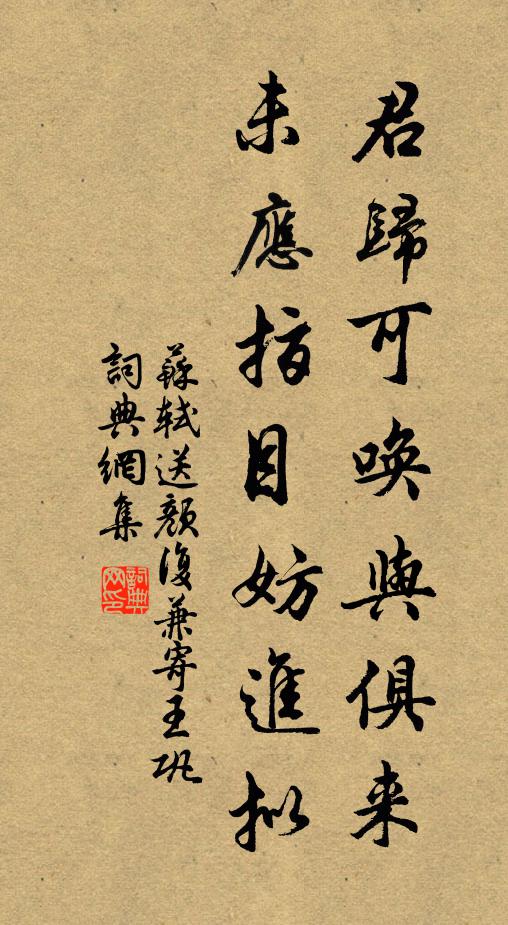 君歸可喚與俱来
未應指目妨進拟
蘇軾送顏復兼寄王巩
詞典網集
詞典网印